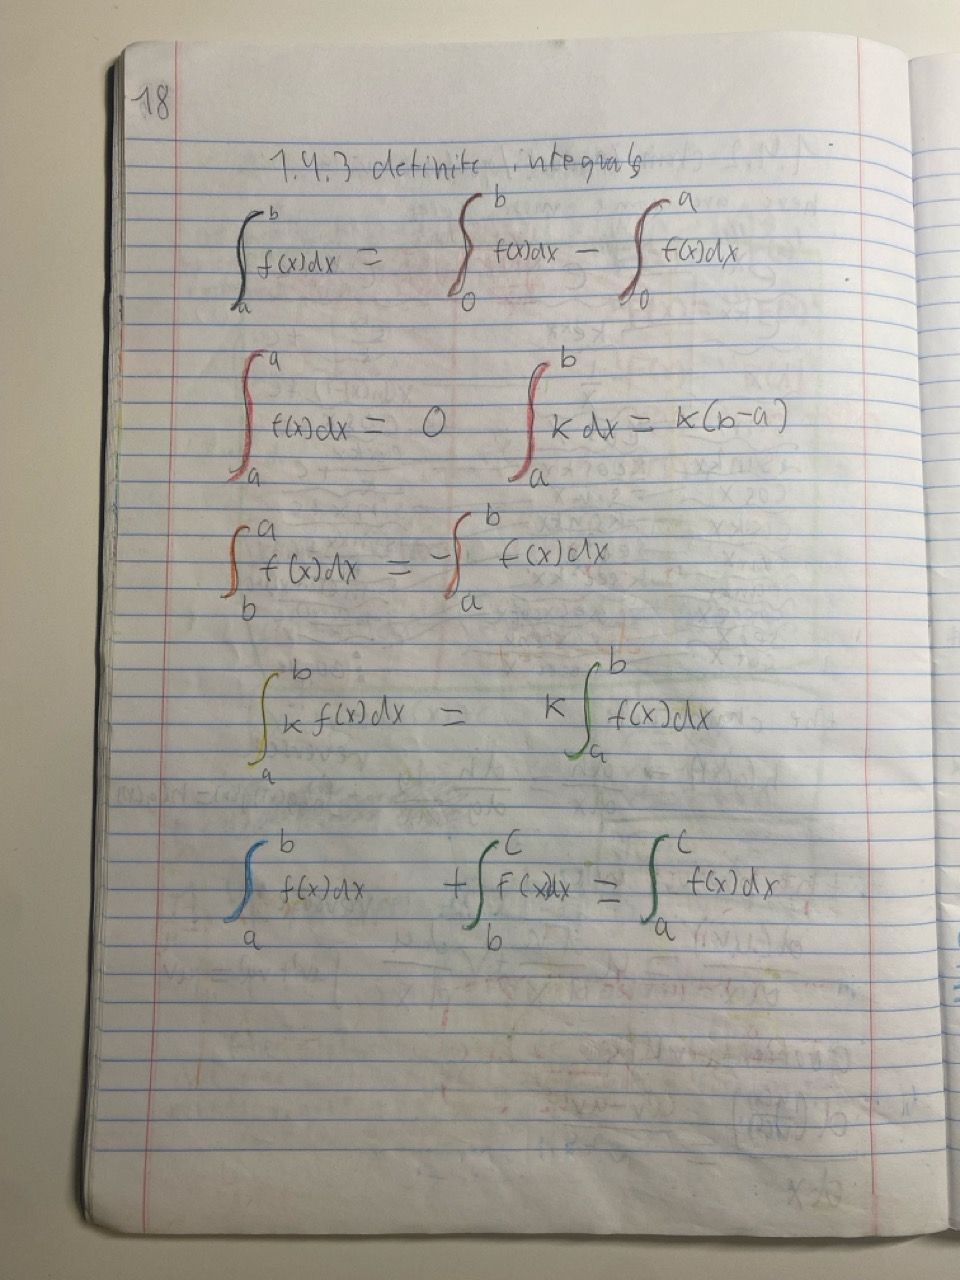 18
1.4.3 definite integrals
∫_a^b f(x)dx = ∫_0^b f(x)dx − ∫_0^a f(x)dx
∫_a^a f(x)dx = 0 ∫_a^b k dx = k(b-a)
∫_b^a f(x)dx = -∫_a^b f(x)dx
∫_a^b k f(x)dx = k ∫_a^b f(x)dx
∫_a^b f(x)dx + ∫_b^c F(x)dx = ∫_a^c f(x)dx